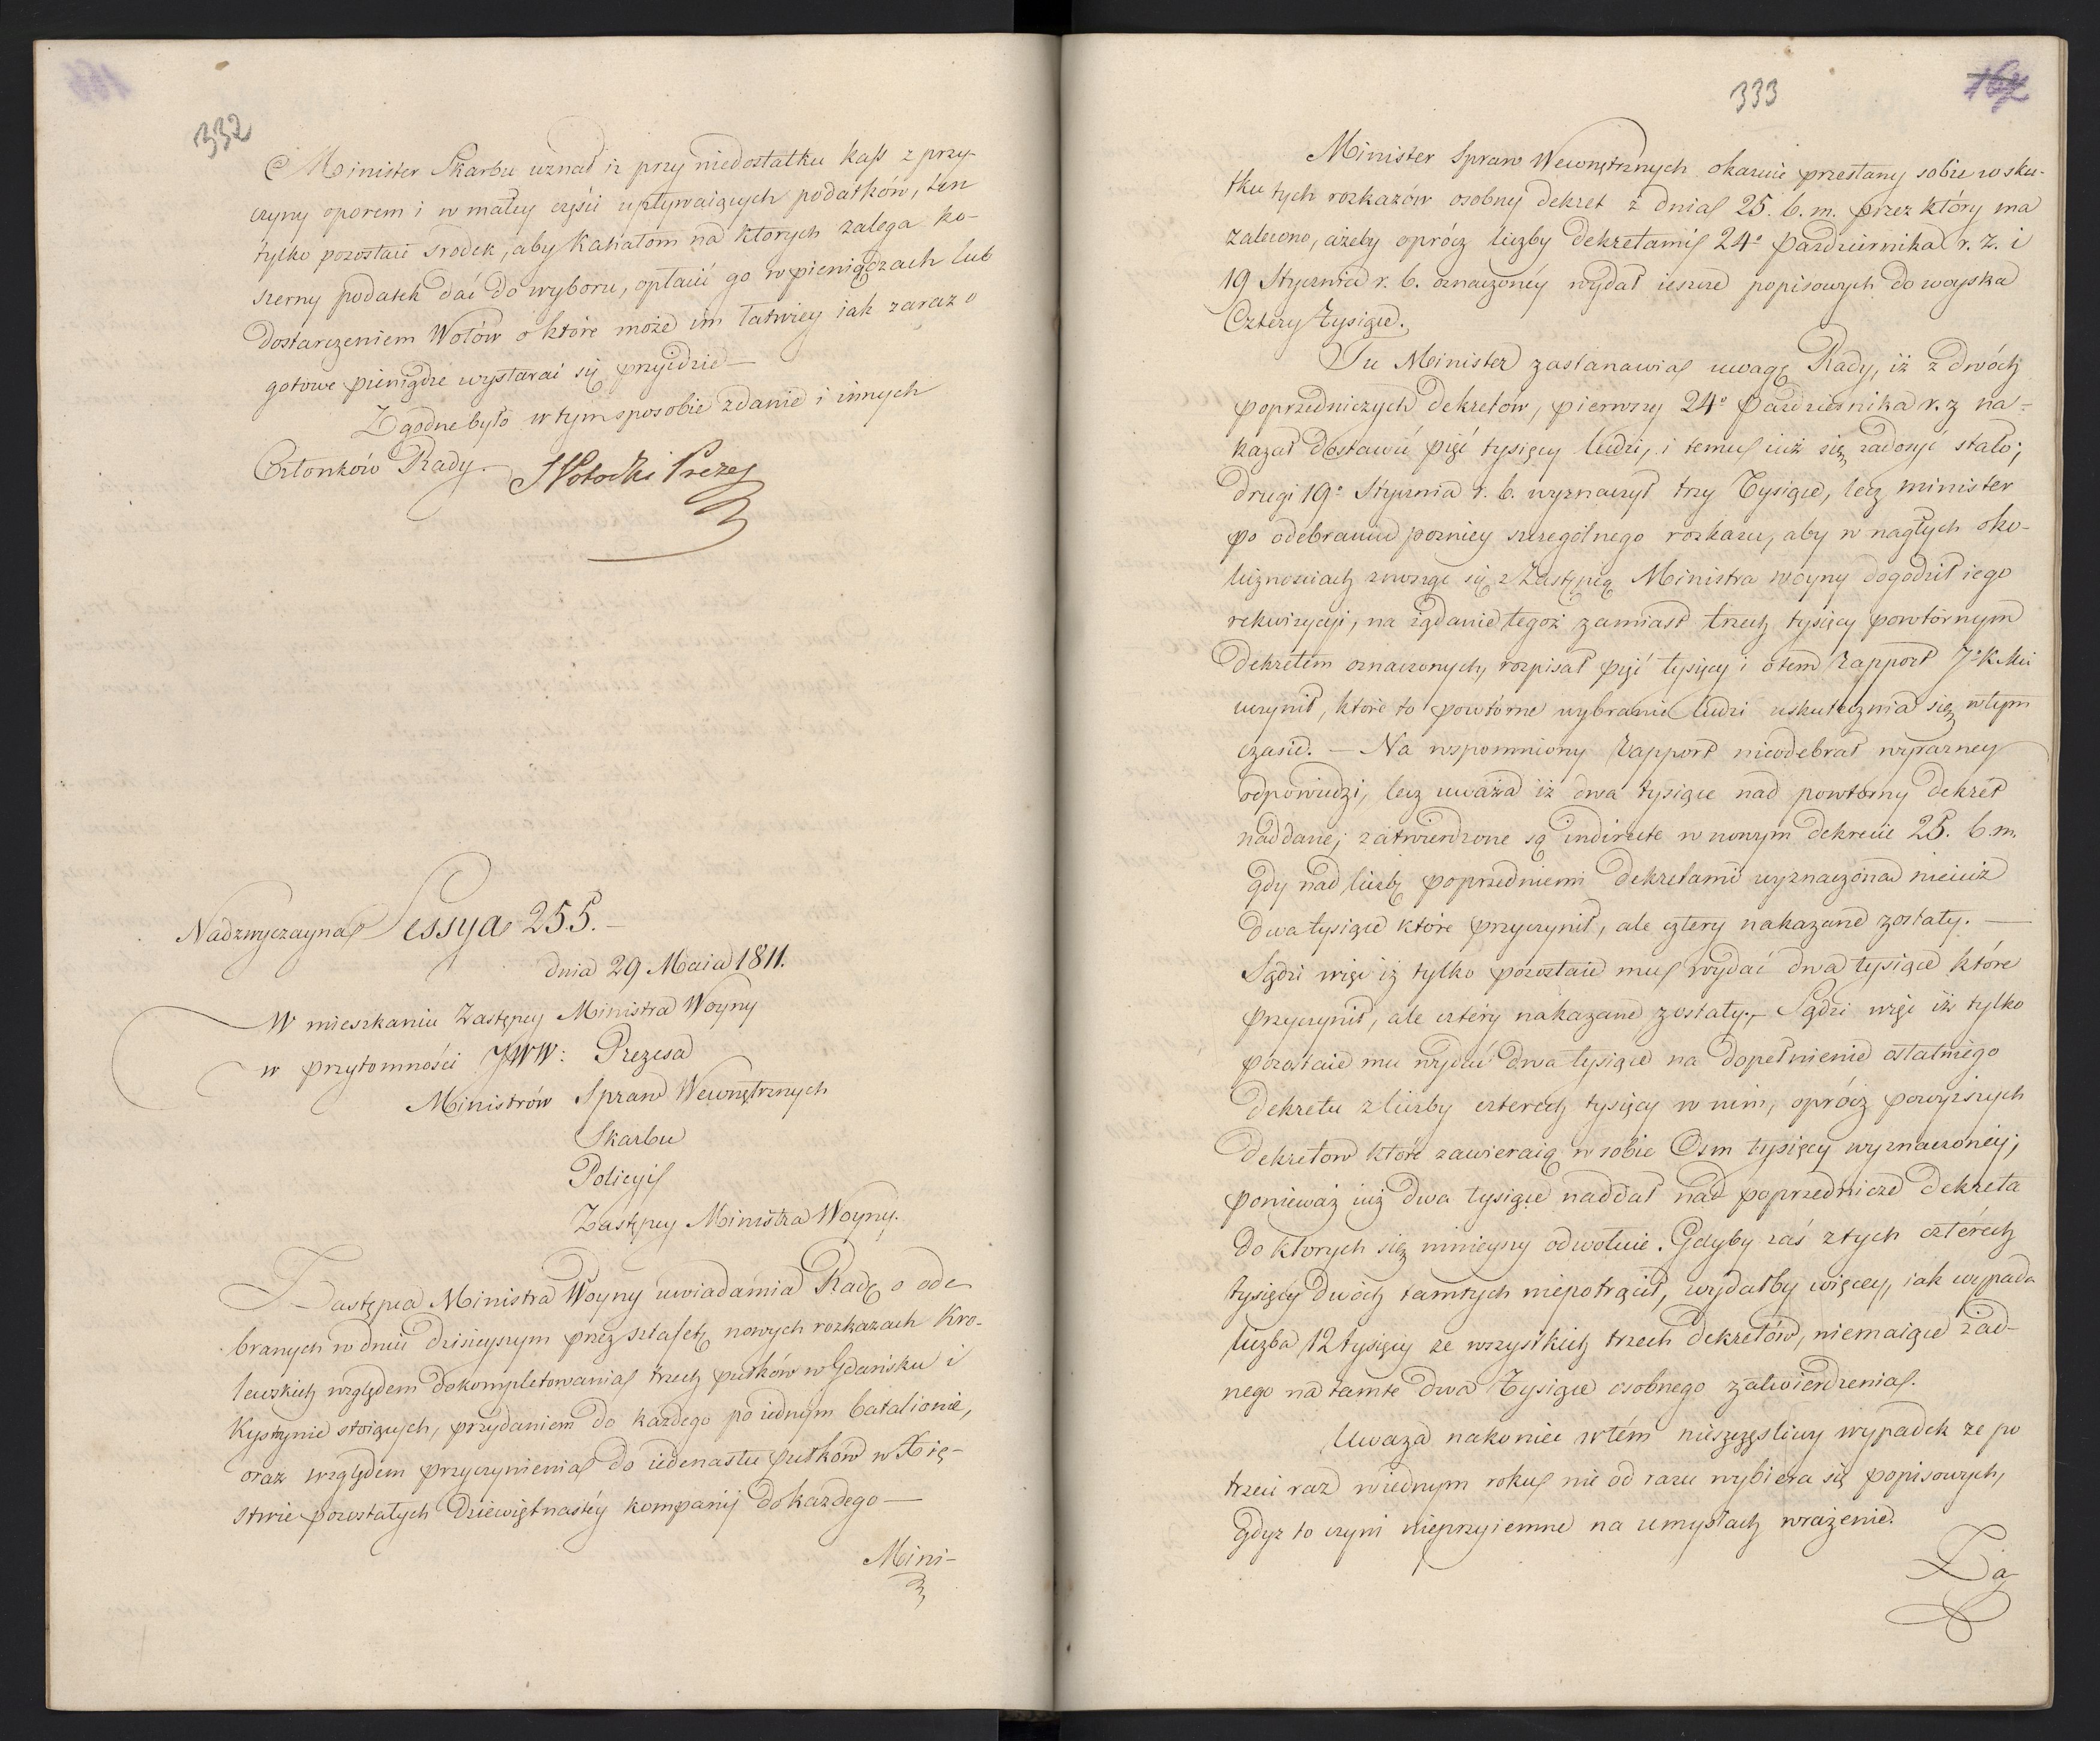 332
Minister Skarbu uznał iż przy niedostatku kass z przy-
czyny oporem i w małey części upływaiących podatków, ten
tylko pozostaie srodek, aby Kahałom na ktorych zalega ko-
szerny podatek dać do wyboru, opłacić go w pieniądzach lub
dostarczeniem Wołów o które może im łatwiey iak zaraz o
gotowe pieniądze wystarać się przyidzie —
Zgodne było w tym sposobie zdanie i innych
Członków Rady. SPotocki Prezes
Nadzwyczayna Sessya 255. —
dnia 29 Maia 1811.
W mieszkaniu Zastępcy Ministra Woyny
w przytomności JWW: Prezesa
Ministrów Spraw Wewnętrznych
Skarbu
Policyi
Zastępcy Ministra Woyny.
Zastępca Ministra Woyny uwiadamia Radę o ode
branych w dniu dzisieyszym przez sztafetę nowych rozkazach Kro-
lewskich względem dokompletowania trzech pułków w Gdańsku i
Kystrynie stoiących, przydaniem do każdego po iednym batalionie,
oraz względem przyczynienia do iedenastu pułków w Xię-
stwie pozostałych dziewiętnastéy kompanij do każdego —
Mini-
333
167
Minister Spraw Wewnętrznych okazuie przesłany sobie w sku-
tku tych rozkazów osobny dekret z dnia 25. b. m. przez który ma
zalecono, ażeby oprócz liczby dekretami 24º Pazdziernika r. z. i
19 Stycznia r. b. oznaczonéy wydał ieszcze popisowych do woyska
Cztery tysiące.
Tu Minister zastanawia uwagę Rady, iż z dwóch
poprzedniczych dekretow, pierwszy 24º Pazdziernika r. z na=
kazał dostawić pięć tysięcy ludzi, i temu iuż się zadosyć stało;
drugi 19º Stycznia r. b. wyznaczył trzy Tysiące, lecz minister
po odebraniu pozniey szczególnego rozkazu, aby w nagłych oko-
licznosciach znosząc się z Zastępcą Ministra woyny dogodził iego
rekwizycyi, na żądanie tegoż zamiast trzech tysięcy powtórnym
dekretem oznaczonych, rozpisał pięć tysięcy i o tem Rapport Jº K Mci
uczynił, które to powtórne wybranie ludzi uskutecznia się w tym
czasie. — Na wspomniony Rapport nieodebrał wyrazney
odpowiedzi, lecz uważa iż dwa tysiące nad powtorny dekret
naddane, zatwierdzone są indirecte w nowym dekrecie 25. b. m.
gdy nad liczbę poprzedniemi dekretami wyznaczona nieiuż
dwa tysiące które przyczynił, ale cztery nakazane zostały. —
Sądzi więc iż tylko pozostaie mu wydać dwa tysiące które
przyczynił, ale cztéry nakazane zostały. — Sądzi więc iż tylko
pozostaie mu wydać dwa tysiące na dopełnienie ostatniego
dekretu z liczby czterech tysięcy w nim, oprócz powyższych
dekretow które zawieraią w sobie Osm tysięcy wyznaczonéy;
ponieważ iuż dwa tysiące naddał nad poprzednicze dekreta
do ktorych się ninieyszy odwołuie. Gdyby zaś z tych cztérech
tysięcy dwóch tamtych niepotrącił, wydałby więcey, iak wypada
liczba 12 tysięcy ze wszystkich trzech dekretów, niemaiąc żad-
nego na tamte dwa Tysiące osobnego zatwierdzenia.
Uważa nakoniec w tém nieszczęsliwy wypadek ze po
trzeci raz w iednym roku nie od razu wybiera się popisowych,
gdyż to czyni nieprzyiemne na umysłach wrażenie.
Za